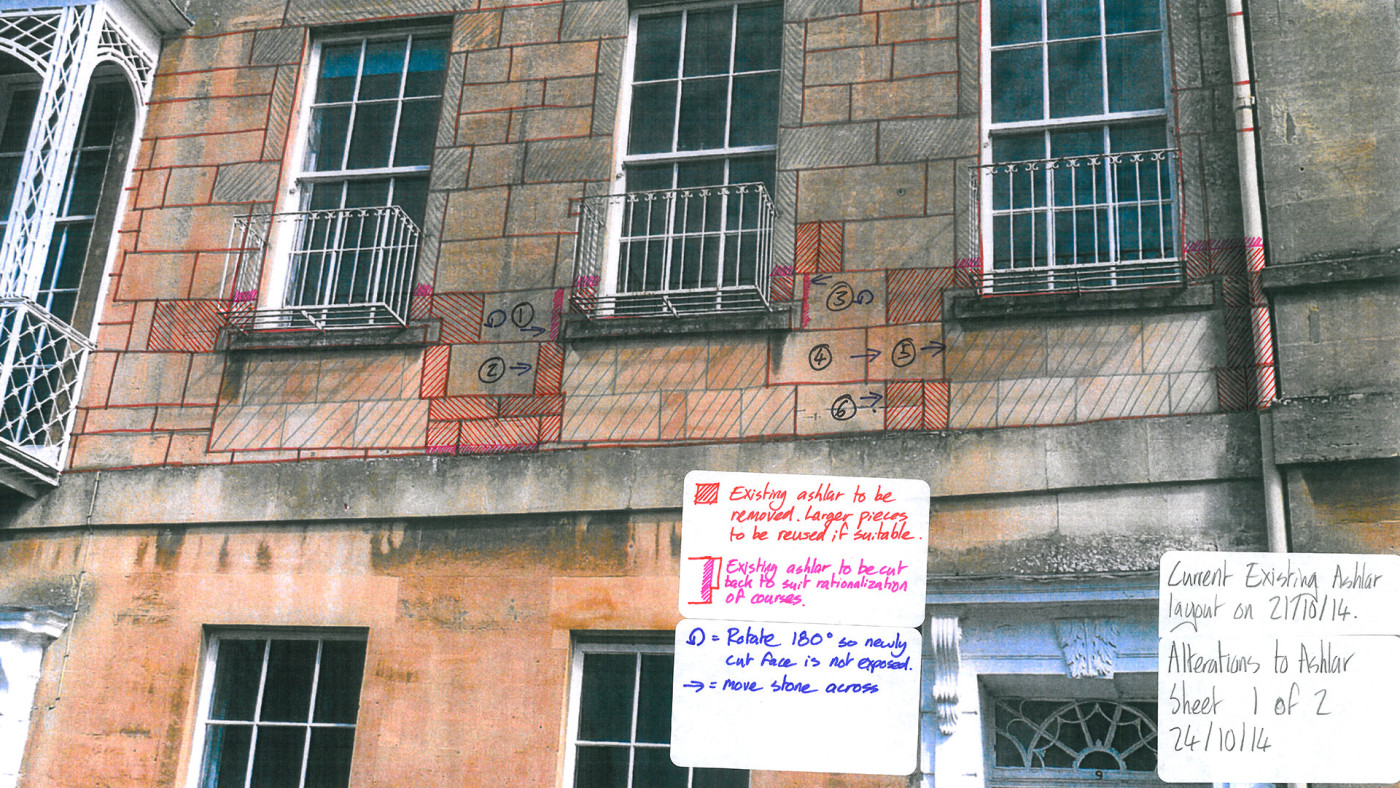 1
2
3
4
5
6
Existing ashlar to be
removed. Larger pieces
to be reused if suitable.
Existing ashlar to be cut
back to suit rationalization
of courses.
= Rotate 180° so newly
cut face is not exposed.
→ = move stone across
Current Existing Ashlar
layout on 21/10/14.
Alterations to Ashlar
Sheet 1 of 2
24/10/14
9